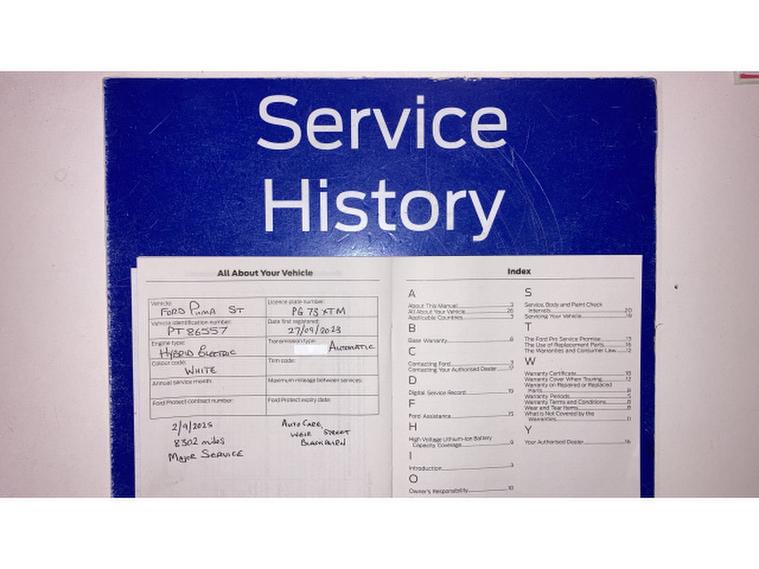 Service
History
All About Your Vehicle
Vehicle:
FORD PUMA ST
Licence plate number:
PG 73 XTM
Vehicle identification number:
PT 86557
Date first registered:
27/09/2023
Engine type:
HYBRID ELECTRIC
Transmission type:
AUTOMATIC
Colour code:
WHITE
Trim code:
Annual service month:
Maximum mileage between services:
Ford Protect contract number:
Ford Protect expiry date:
2/9/2025
8302 miles
MAJOR SERVICE
AUTOCARE,
WEIR STREET
BLACKBURN
Index
A
About This Manual 3
All About Your Vehicle 26
Applicable Countries 3
B
Base Warranty 6
C
Contacting Ford 3
Contacting Your Authorised Dealer
D
Digital Service Record 19
F
Ford Assistance 15
H
High Voltage Lithium-Ion Battery
Capacity Coverage 9
I
Introduction 3
O
Owner's Responsibility 10
S
Service, Body and Paint Check
Intervals 20
Servicing Your Vehicle 19
T
The Ford Pro Service Promise 17
The Use of Replacement Parts
The Warranties and Consumer Law 12
W
Warranty Certificate 18
Warranty Cover When Touring 12
Warranty on Repaired or Replaced
Parts 8
Warranty Periods 5
Warranty Terms and Conditions 8
Wear and Tear Items 8
What is Not Covered by the
Warranties 11
Y
Your Authorised Dealer 16